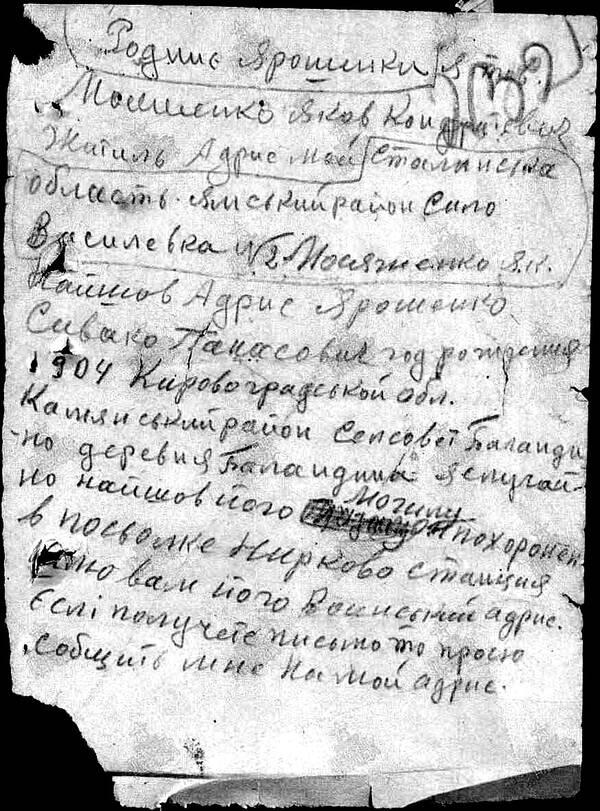 Родние Ярошенки я
Мосиенко Яков Кондратевич
Житиль Адрис мой Сталинська
область. Ямський район Сило
Василевка №2. Мосиенко Як.
Найшов Адрис Ярошенко
Сивако Панасович год рождения
1904 Кировоградськой обл.
Камянський район Сельсовет Баланди
но деревня Баландина я случай-
но найшов його могилу похоронен
в посьолке Нирково станция
вам його Воинський адрис.
Еслі получете письмо то прошу
собщить мне На мой адрис.